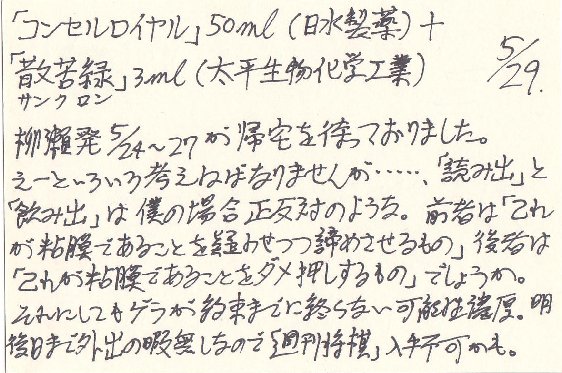 「コンセルロイヤル」50ml（日水製薬）+
5/29.
「散苦緑」3ml（太平生物化学工業）
サンクロン
柳瀬発5/24～27が帰宅を待っておりました。
えーといろいろ考えねばなりませんが……、「読み出」と
「飲み出」は僕の場合正反対のような。前者は「これ
が粘膜であることを疑わせつつ諦めさせるもの」後者は
「これが粘膜であることをダメ押しするもの」でしょうか。
それにしてもゲラが約束までに終らない可能性濃厚。明
後日まで外出の暇無しなので「週刊将棋」入手不可かも。